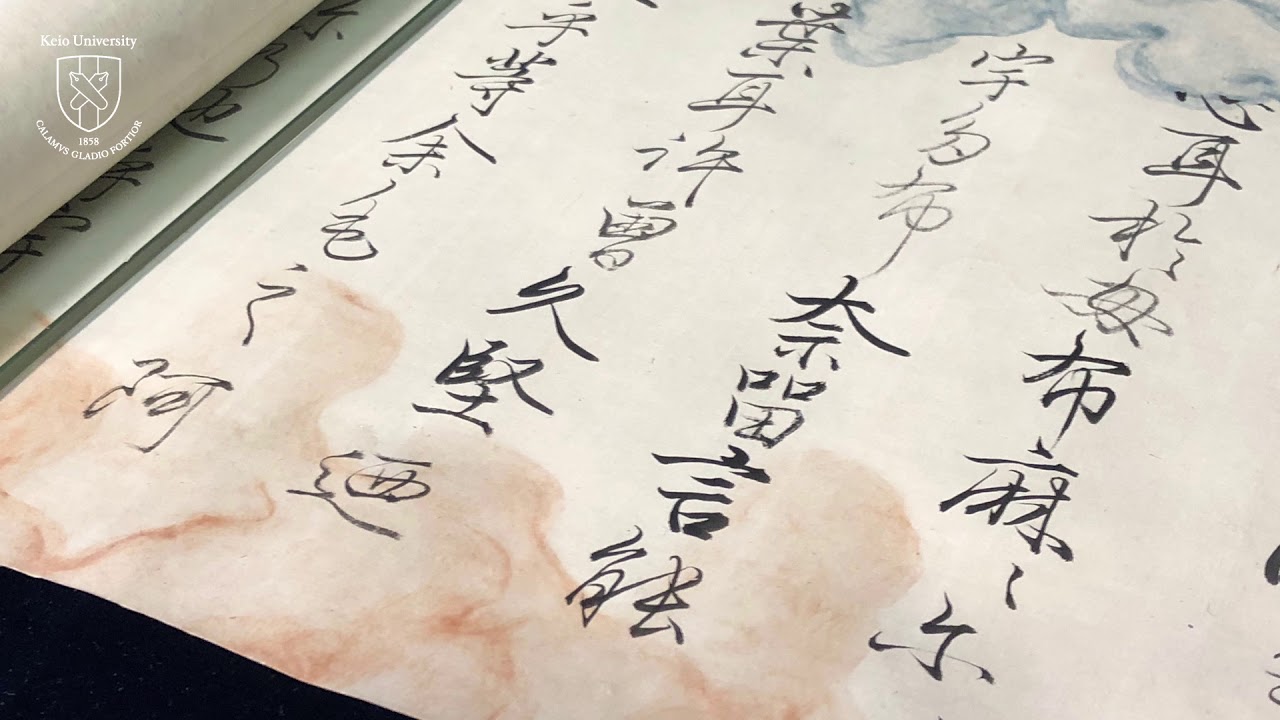 Keio University
1858
CALAMVS GLADIO FORTIOR
心耳於毋布麻〻尓
宇多布奈留言能
葉耳許曽久堅廼
乎等余毛之阿